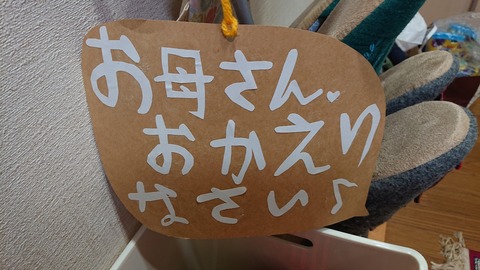 お母さん♥
おかえり
なさい♪